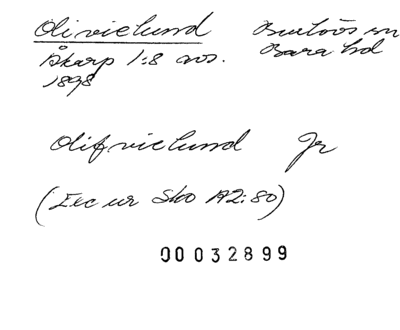 Olivielund Burlövs sn
Åkarp 1:8 avs. Bara hd
1898
Olifvielund Jr
(Exc ur Sko A2:80)
00032899